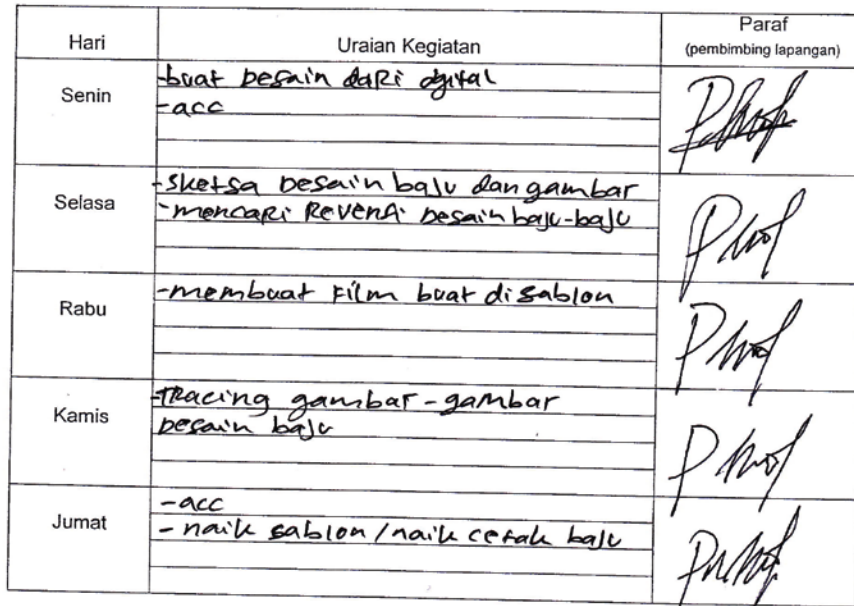 Hari
Uraian Kegiatan
Paraf
(pembimbing lapangan)
Senin
-buat Desain daRi digital
-acc
Selasa
-sketsa Desain baju dan gambar
-mencaRi ReVenAi Desain baju-baju
Rabu
-membuat Film buat disablon
Kamis
-TRacing gambar-gambar
Desain baju
Jumat
-acc
- naik sablon / naik cetak baju